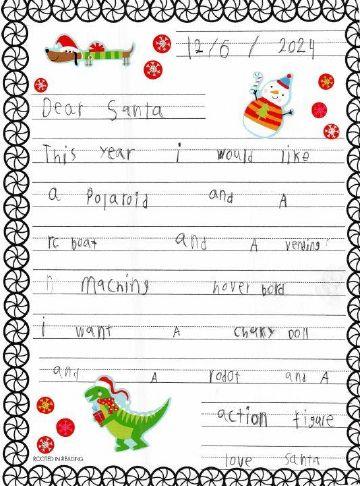 12/6/2024
Dear Santa
This year i would like
a Polaroid and A
rc boat and A vending
n maching hover bord
i want A chaky Doll
and A rodot and A
action figure
love Santa
ROOTED IN READING